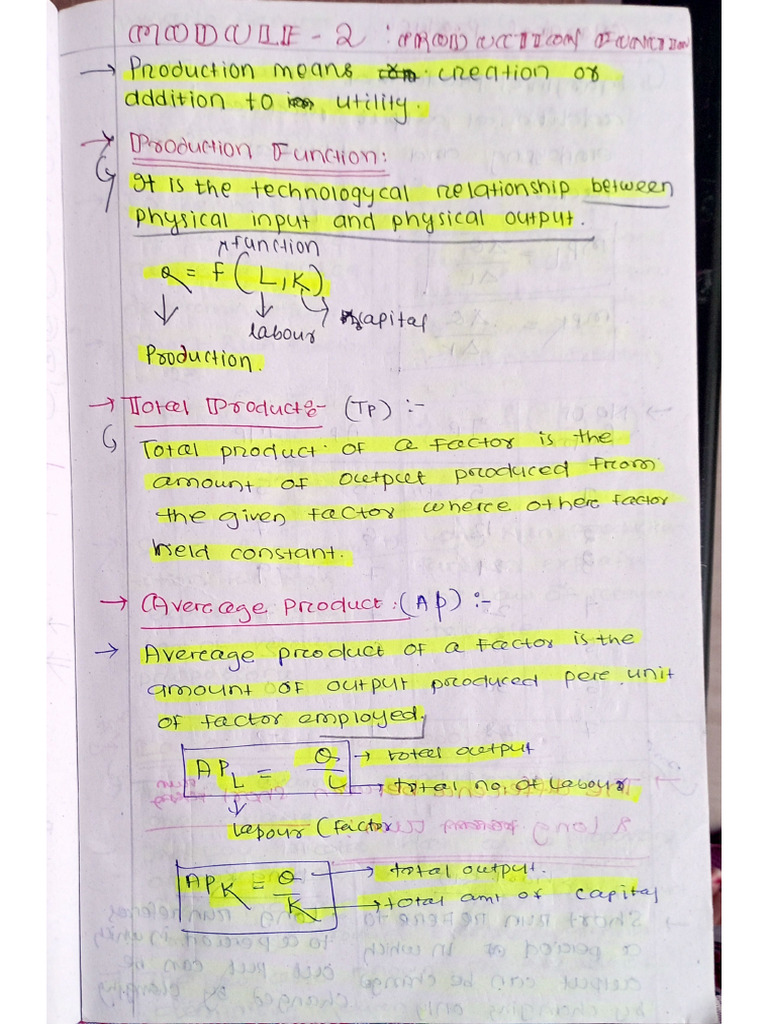 MODULE - 2 : PRODUCTION FUNCTION
→ Production means creation or
addition to utility.
→ Production Function:
It is the technologycal relationship between
physical input and physical output.
function
Q = f (L, K)
labour
capital
Production.
→ Total Product:- (TP) :-
Total product of a factor is the
amount of output produced from
the given factor where other factor
held constant.
→ Average Product : (AP) :-
→ Average product of a factor is the
amount of output produced per unit
of factor employed.
AP_L = Q/L → total output
→ total no. of labour
labour (factor
AP_K = Q/K → total output.
→ total amt of capital